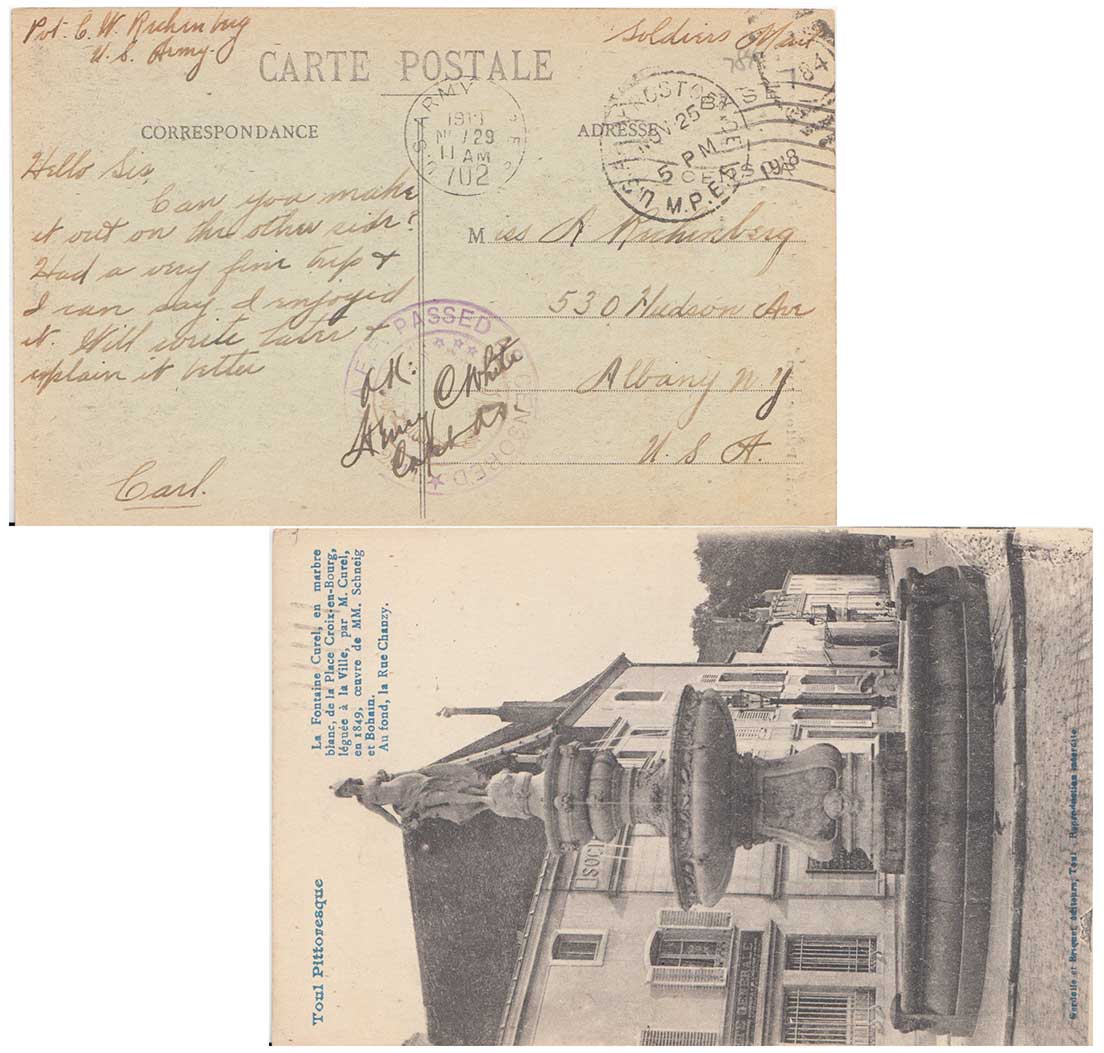 Pvt. C. W. Richenberg
U. S. Army.
Soldiers Mail
CARTE POSTALE
CORRESPONDANCE
ADRESSE
U.S. ARMY
NOV 29
11 AM
702
784
NOV 25
5 PM
U.S. M.P.E.S.
1918
Hello Sis
Can you make
it out on the other side?
Had a very fine trip &
I can say I enjoyed
it. Will write later &
explain it better
Carl.
Miss R Richenberg
530 Hudson Ave
Albany N Y.
U. S. A.
A.E.F. PASSED AS CENSORED
O.K.
Henry C White
Toul Pittoresque
La Fontaine Curel, en marbre
blanc, de la Place Croix-en-Bourg,
léguée à la Ville, par M. Curel,
en 1849, œuvre de MM. Schneig
et Bohain.
Au fond, la Rue Chanzy.
SOCI
TÉ GENERALE
et Briquet éditeurs, Toul - Reproduction interdite